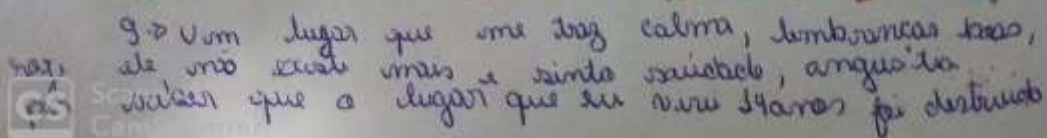 9-> Um lugar que me traz calma, lembranças boas,
ele não existe mais e sinto saudade, angustia
saber que o lugar que eu vivi 14 anos foi destruido